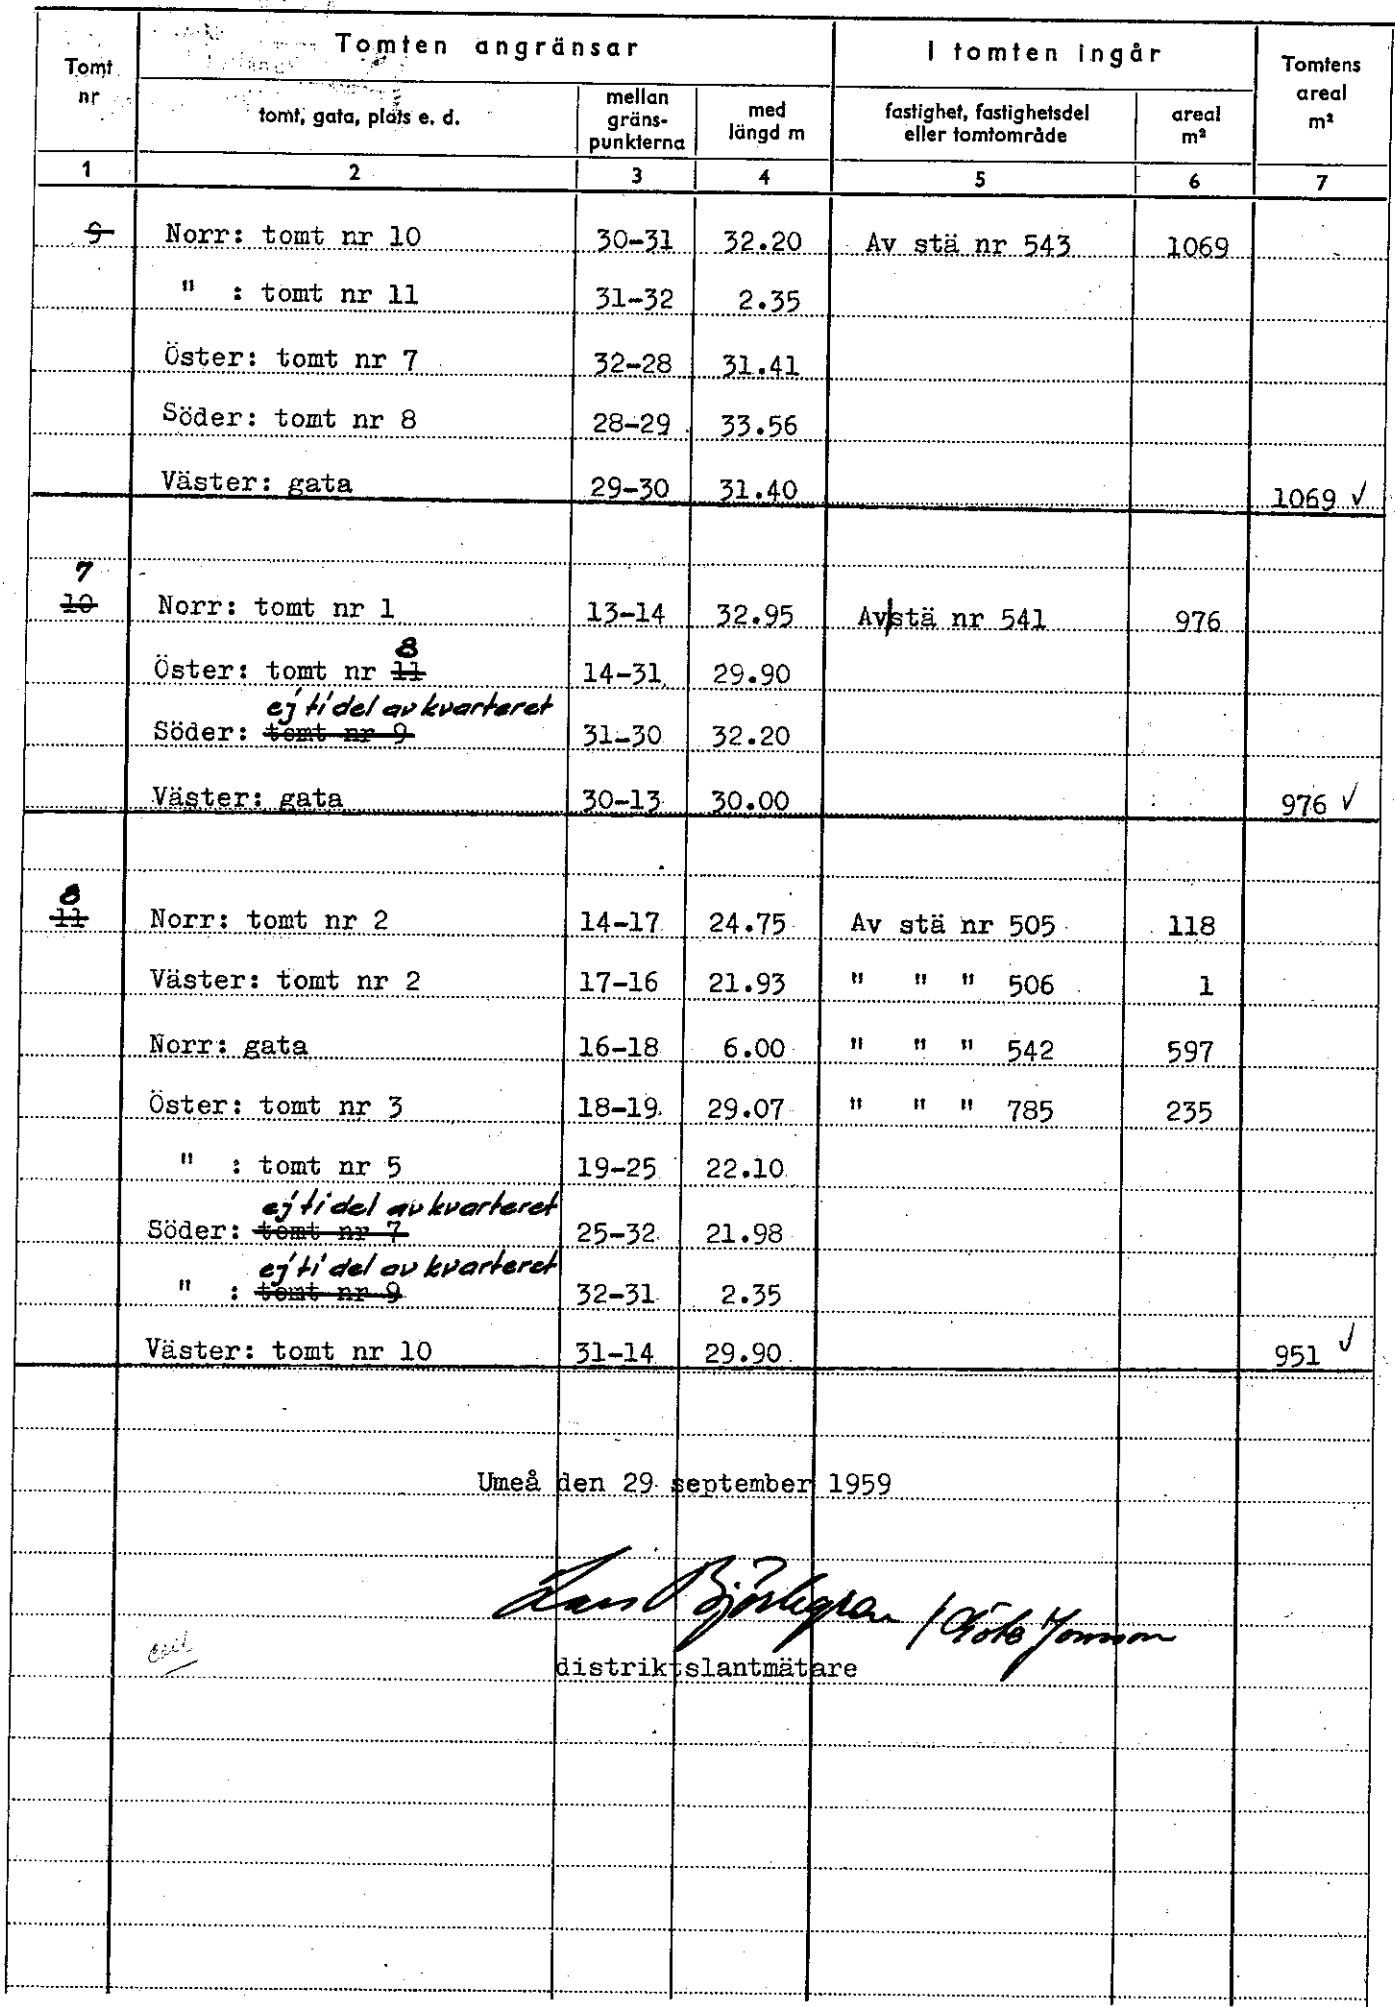 Tomt nr
Tomten angränsar
I tomten ingår
Tomtens areal m²
tomt, gata, plats e. d.
mellan gräns-punkterna
med längd m
fastighet, fastighetsdel eller tomtområde
areal m²
1 2 3 4 5 6 7
9 Norr: tomt nr 10 30-31 32.20 Av stä nr 543 1069
" : tomt nr 11 31-32 2.35
Öster: tomt nr 7 32-28 31.41
Söder: tomt nr 8 28-29 33.56
Väster: gata 29-30 31.40 1069 ✓
7
10 Norr: tomt nr 1 13-14 32.95 Av|stä nr 541 976
8
Öster: tomt nr 11 14-31 29.90
ej ti del av kvarteret
Söder: tomt nr 9 31-30 32.20
Väster: gata 30-13 30.00 976 ✓
8
11 Norr: tomt nr 2 14-17 24.75 Av stä nr 505 118
Väster: tomt nr 2 17-16 21.93 " " " 506 1
Norr: gata 16-18 6.00 " " " 542 597
Öster: tomt nr 3 18-19 29.07 " " " 785 235
" : tomt nr 5 19-25 22.10
ej ti del av kvarteret
Söder: tomt nr 7 25-32 21.98
ej ti del av kvarteret
" : tomt nr 9 32-31 2.35
Väster: tomt nr 10 31-14 29.90 951 ✓
Umeå den 29 september 1959
distriktslantmätare